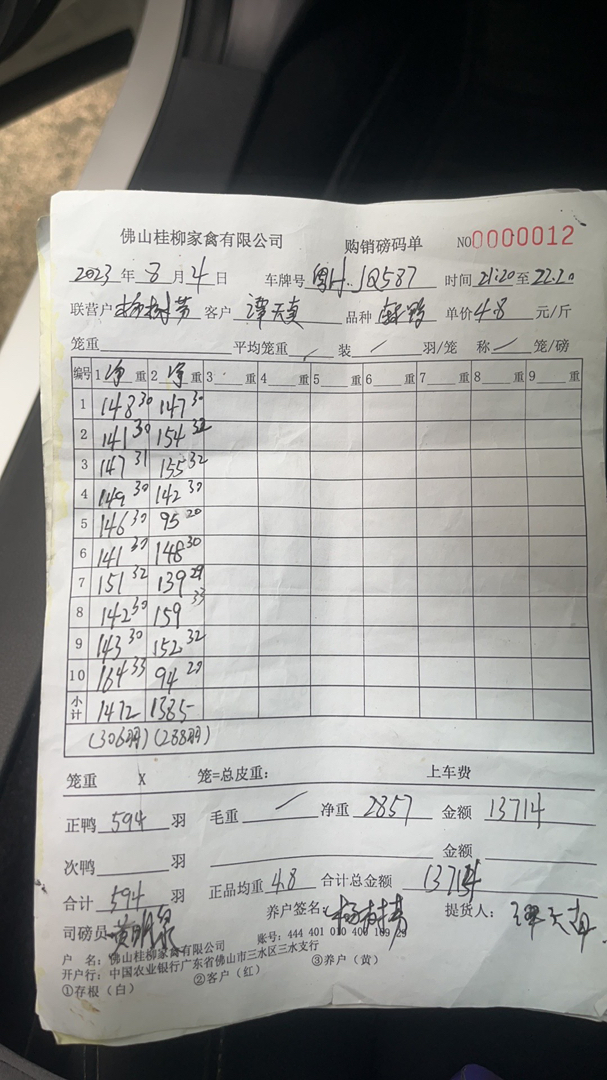 佛山桂柳家禽有限公司 购销磅码单 NO0000012
2023年8月4日 车牌号 粤H.JQ587 时间21:20至22:20
联营户 客户 谭天真 品种 单价4.8元/斤
笼重 平均笼重 / 装 / 羽/笼 称 / 笼/磅
编号 1净重 2净重 3重 4重 5重 6重 7重 8重 9重
1 148 30 147 30
2 141 30 154 32
3 147 31 155 32
4 149 30 142 30
5 146 30 95 20
6 141 30 148 30
7 151 32 139 29
8 142 30 159 33
9 143 30 152 32
10 164 33 94 20
小计 1472 1385
(306羽)(288羽)
笼重 X 笼=总皮重: 上车费
正鸭 594 羽 毛重 / 净重 2857 金额 13714
次鸭 羽 金额
合计 594 羽 正品均重 4.8 合计总金额 13714
养户签名: 提货人:
司磅员 黄明泉 账号: 444 401 010 400 199 29
户 名: 佛山桂柳家禽有限公司
开户行: 中国农业银行广东省佛山市三水区三水支行
①存根（白） ②客户（红） ③养户（黄）